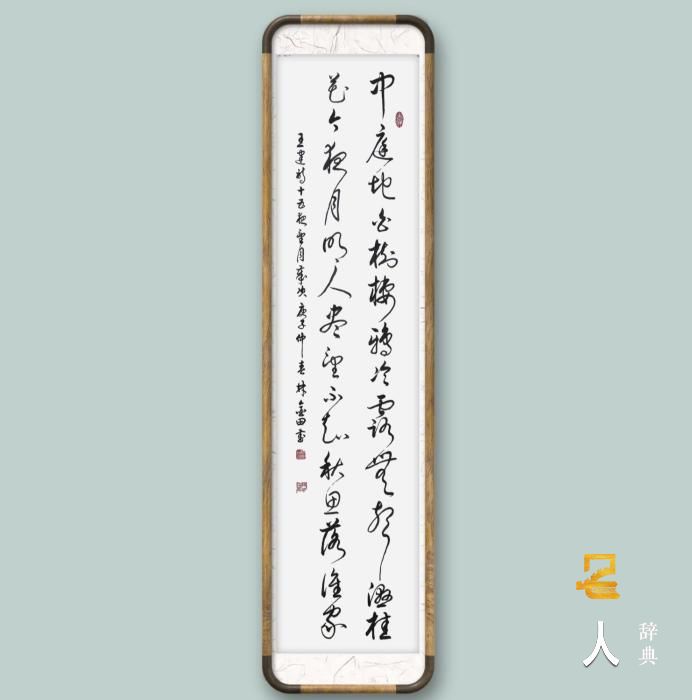 中庭地白树栖鸦冷露无声湿桂
花今夜月明人尽望不知秋思落谁家
王建诗十五夜望月庚子仲春林金田书
名人
辞典